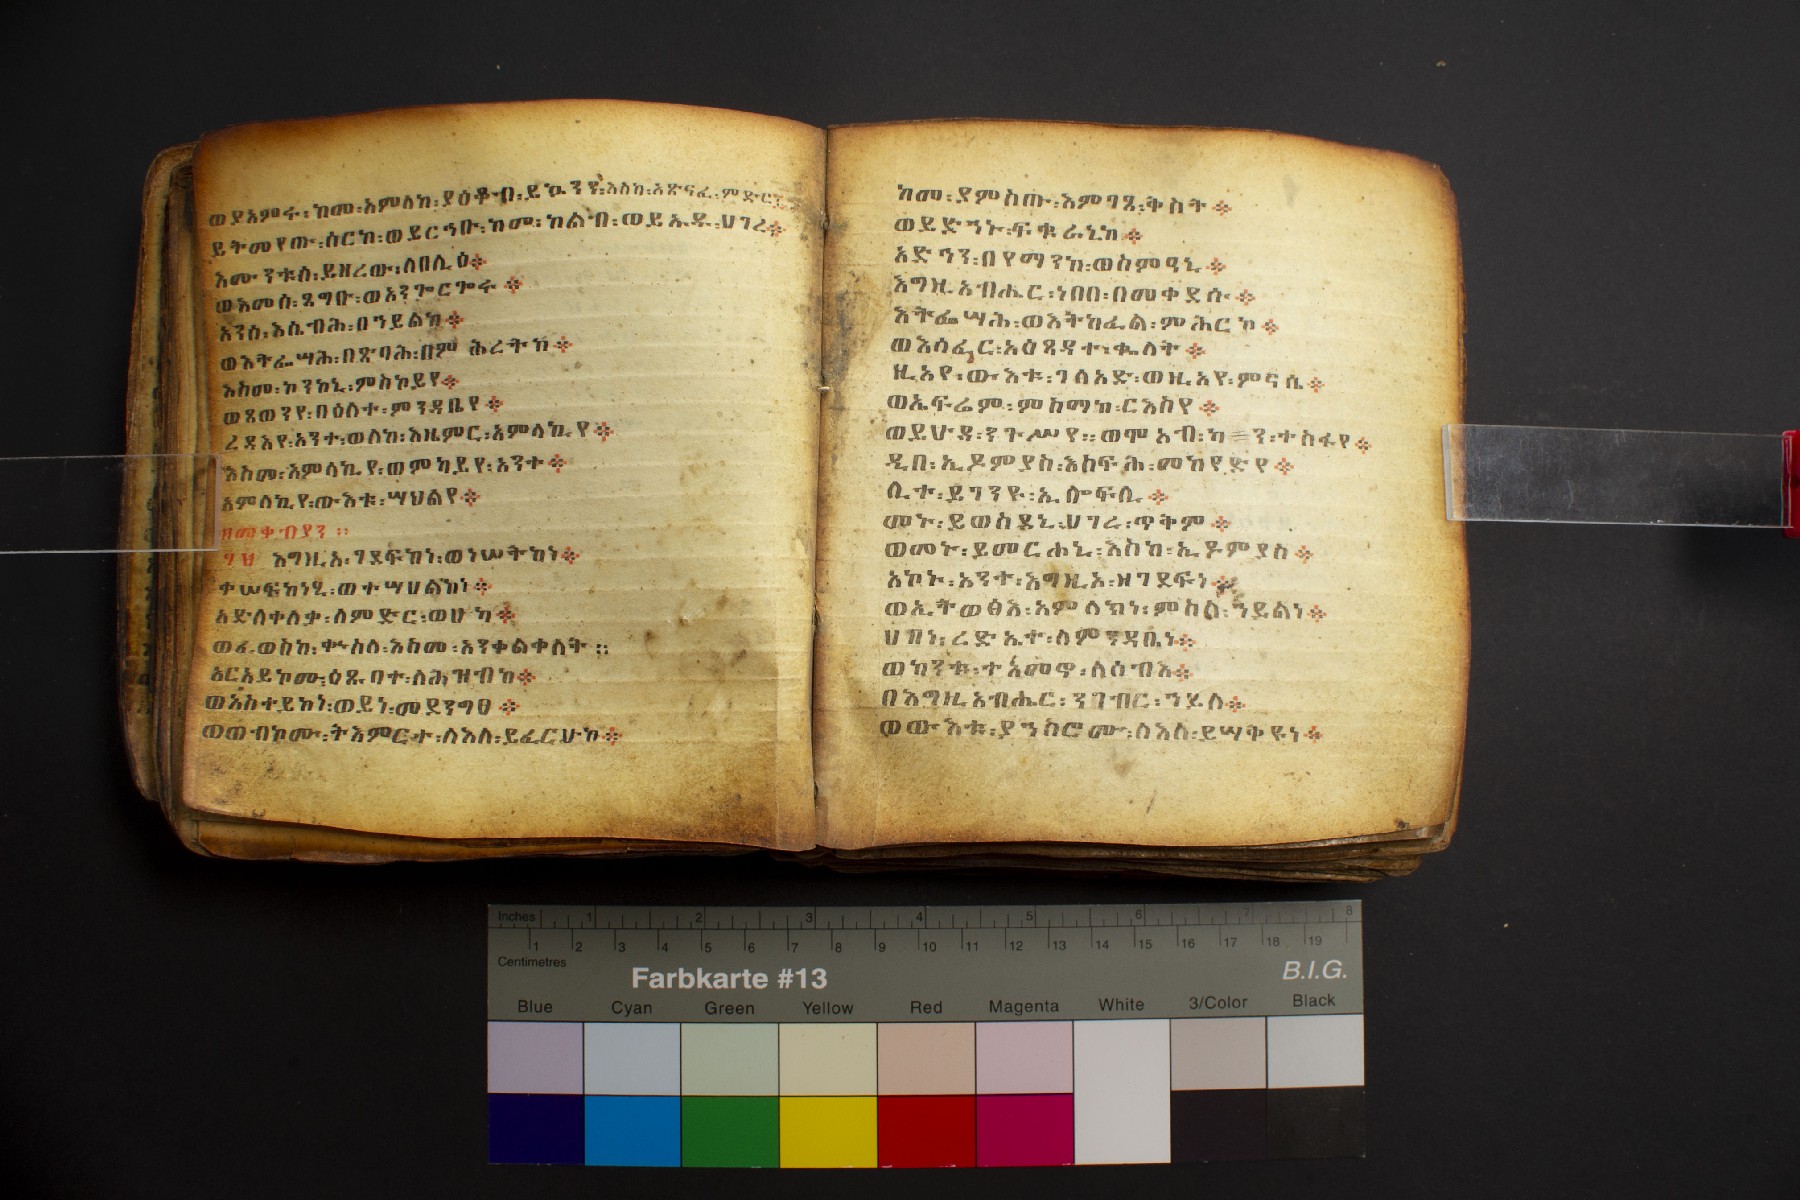 ወያአምሩ፡ከመ፡አምላከ፡ያዕቆብ፡ይኴንን፡እስከ፡አጽናፈ፡ምድር፨
ይትመየጡ፡ሰርከ፡ወይርኅቡ፡ከመ፡ከልብ፡ወይኡዱ፡ሀገረ፨
እሙንቱሰ፡ይዘረው፡ለበሊዕ፨
ወእመሰ፡ጸግቡ፡ወአንጐርጐሩ፨
አንሰ፡እሴብሕ፡በኀይልከ፨
ወእትፌሣሕ፡በጽባሕ፡በምሕረትከ፨
እስመ፡ኮንከኒ፡ምስካይየ፨
ወጸወንየ፡በዕለተ፡ምንዳቤየ፨
ረዳእየ፡አንተ፡ወለከ፡እዜምር፡አምላኪየ፨
እስመ፡አምላኪየ፡ወምካይየ፡አንተ፨
አምላኪየ፡ውእቱ፡ሣህልየ፨
ዘመቀብያን፡፡
፶፱ እግዚአ፡ገደፍከነ፡ወነሠትከነ፨
ቀሠፍከነሂ፡ወተሣሀልከነ፨
አድለቀለቃ፡ለምድር፡ወሆካ፨
ወፈወስከ፡ቍስላ፡እስመ፡አንቀልቀለት፡፡
አርአይኮሙ፡ዕጹባተ፡ለሕዝብከ፨
ወአስተይከነ፡ወይነ፡መደንግፀ፨
ወወብኮሙ፡ትእምርተ፡ለእለ፡ይፈርሁከ፨
ከመ፡ያምስጡ፡እምገጸ፡ቅስት፨
ወይድኀኑ፡ፍቁራኒከ፨
አድኅን፡በየማንከ፡ወስምዓኒ፨
እግዚአብሔር፡ነበበ፡በመቅደሱ፨
እትፌሣሕ፡ወእትከፈል፡ምሕርኮ፨
ወእሳፈር፡አዕጻዳተ፡ቈላት፨
ዚአየ፡ውእቱ፡ገለአድ፡ወዚአየ፡ምናሴ፨
ወኤፍሬም፡ምስማከ፡ርእስየ፨
ወይሁዳ፡ንጉሥየ፡፡ወሞአብ፡ካ፡ን፡ተስፋየ፨
ዲበ፡ኢዶምያስ፡እሰፍሕ፡መከየድየ፨
ሊተ፡ይገንዩ፡ኢሎፍሊ፨
መኑ፡ይወስደኒ፡ሀገረ፡ጥቅም፨
ወመኑ፡ይመርሐኒ፡እስከ፡ኢዶምያስ፨
አኮኑ፡አንተ፡እግዚአ፡ዘገደፍነ፨
ወኢትወፅእ፡አምላክነ፡ምስለ፡ኀይልነ፨
ሀበነ፡ረድኤተ፡ለምንዳቤነ፨
ወከንቱ፡ተአመኖ፡ለሰብእ፨
በእግዚአብሔር፡ንገብር፡ኀይለ፨
ወውእቱ፡ያኀስሮሙ፡ለእለ፡ይሣቅዩነ፨
Inches 1 2 3 4 5 6 7 8
1 2 3 4 5 6 7 8 9 10 11 12 13 14 15 16 17 18 19
Centimetres
Farbkarte #13 B.I.G.
Blue Cyan Green Yellow Red Magenta White 3/Color Black